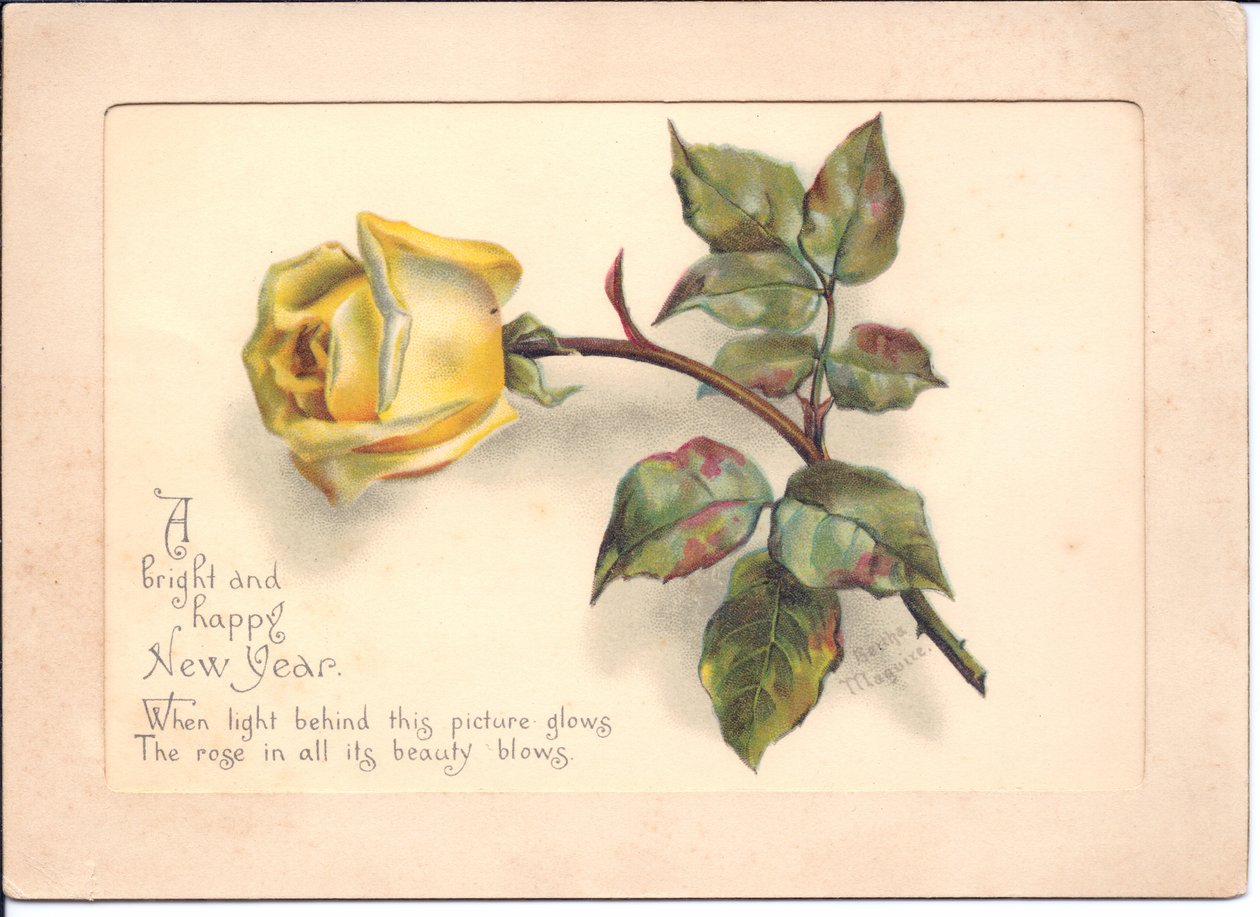 A
bright and
happy
New Year.
When light behind this picture glows
The rose in all its beauty blows.
Bertha
Maguire.